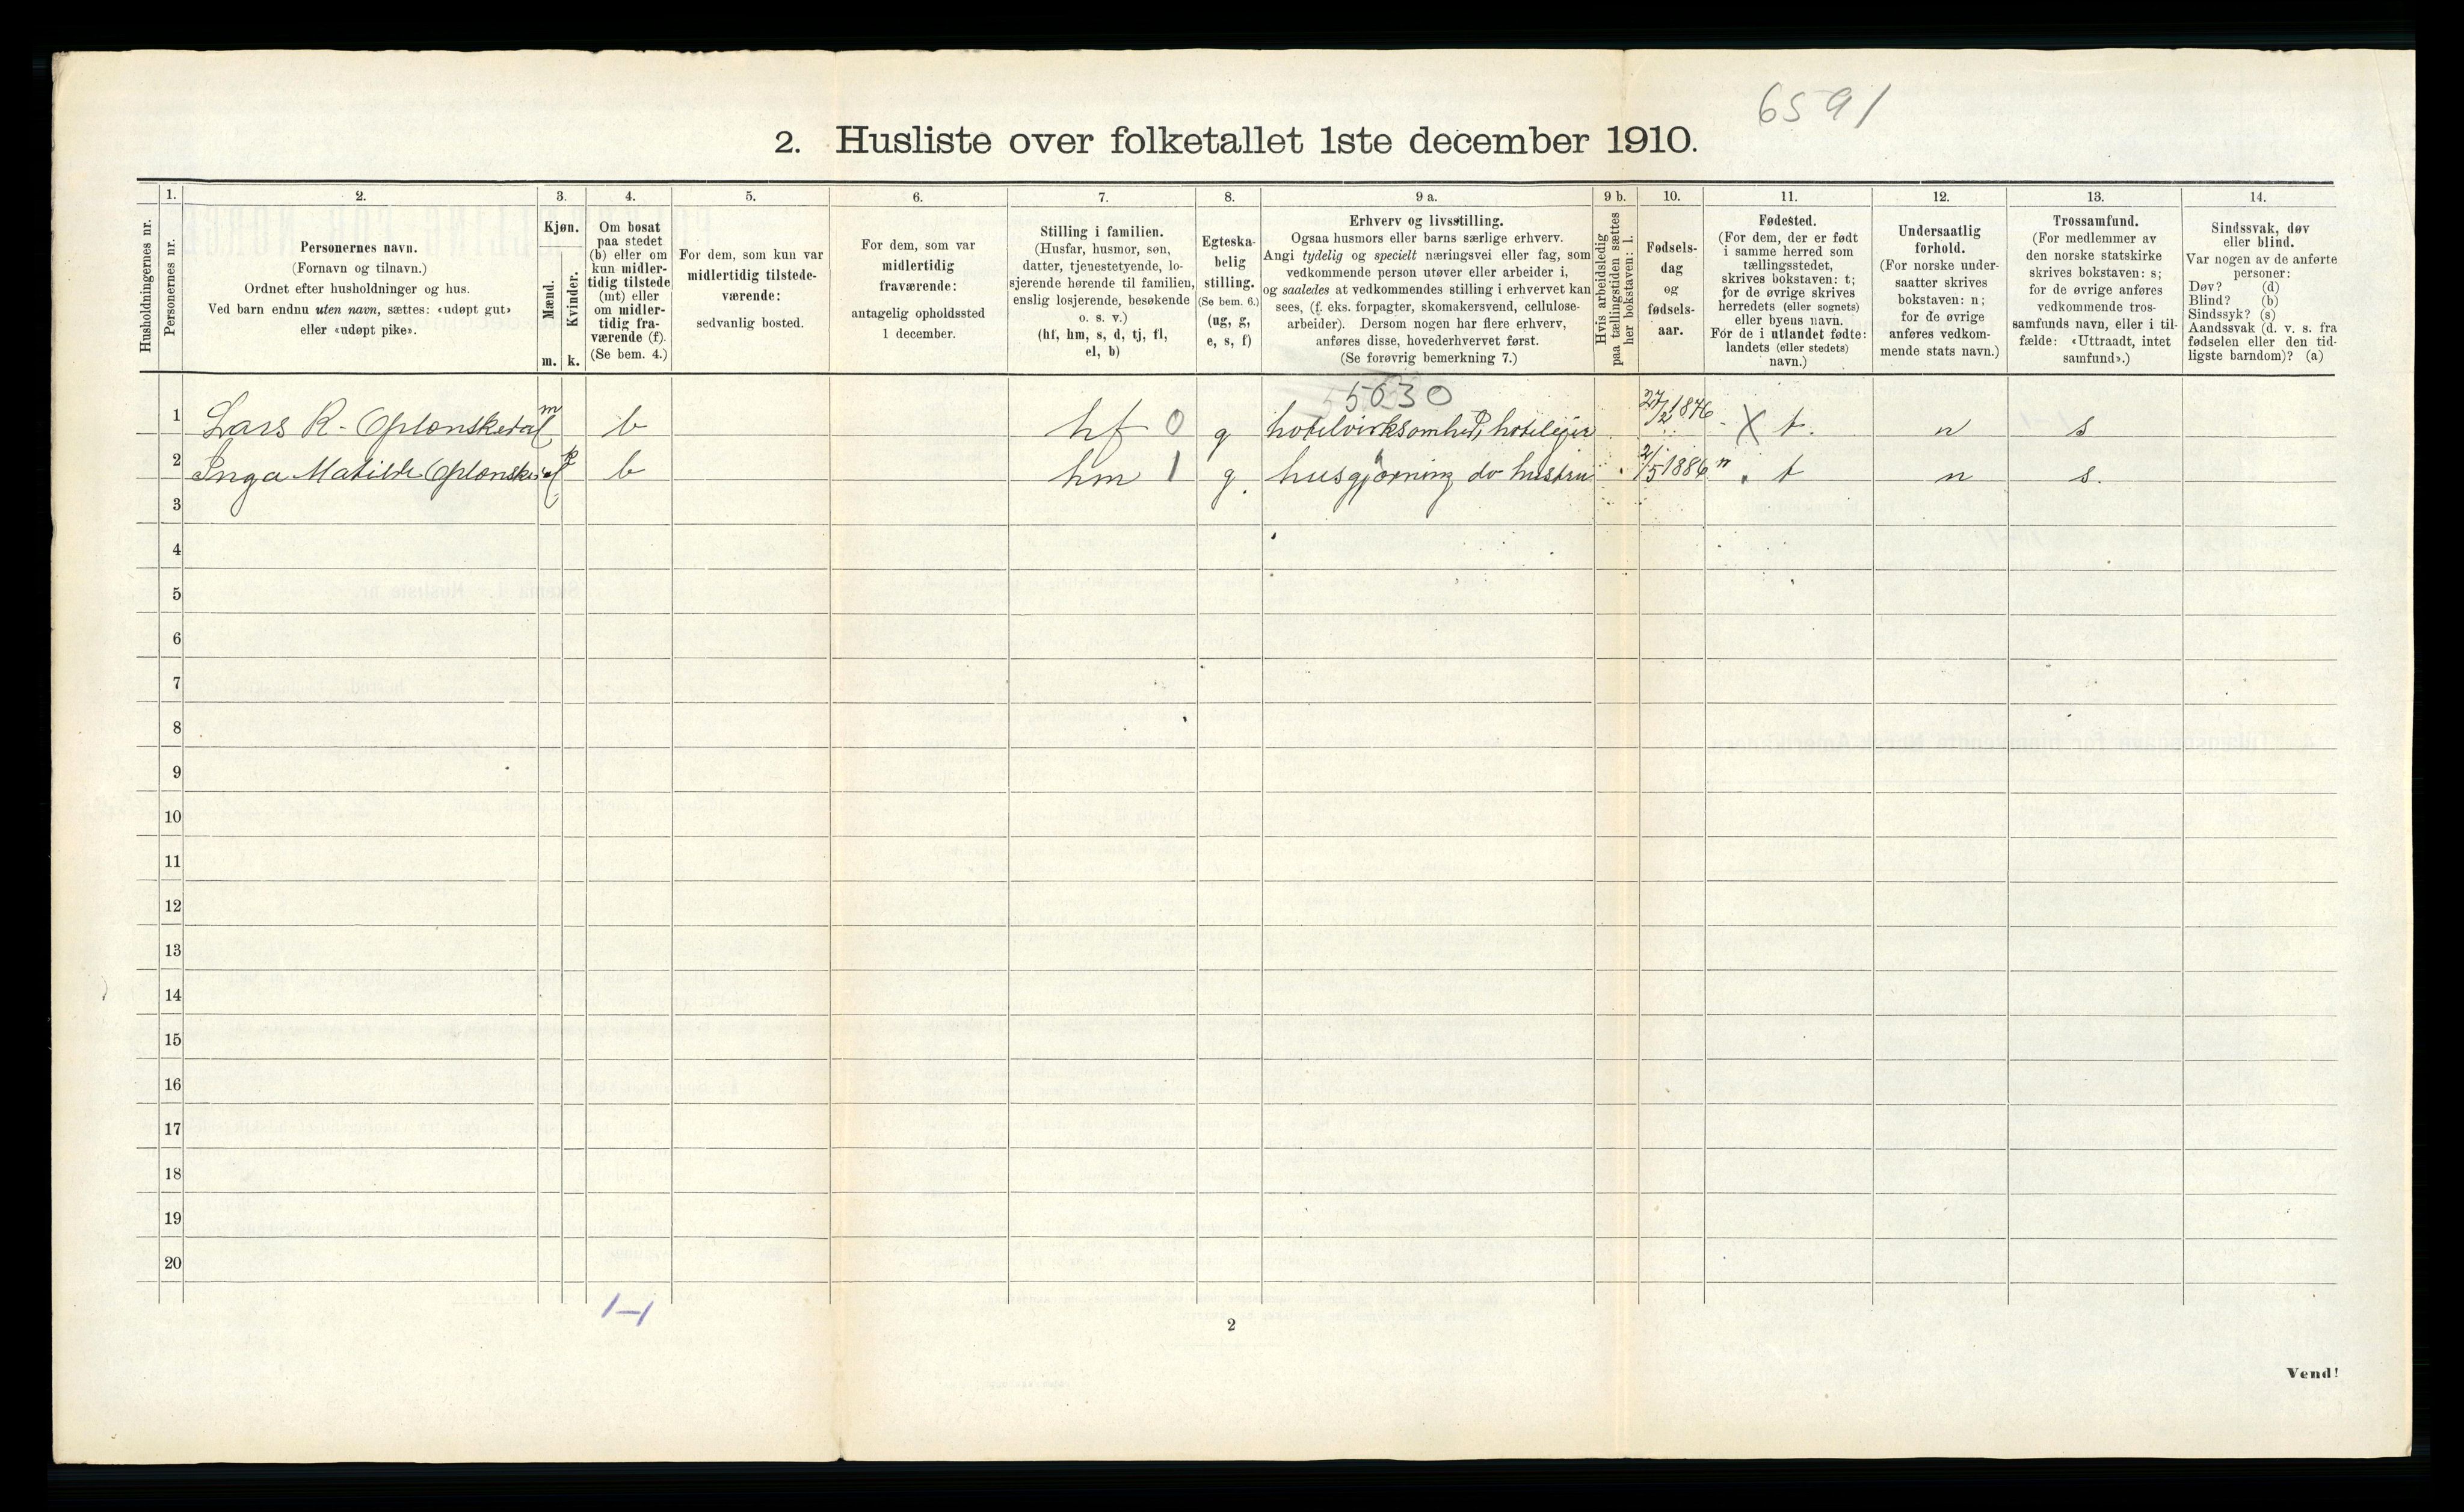 6591
2. Husliste over folketallet 1ste december 1910.
Husholdningernes nr.
1.
Personernes nr.
2.
Personernes navn.
(Fornavn og tilnavn.)
Ordnet efter husholdninger og hus.
Ved barn endnu uten navn, sættes: «udøpt gut»
eller «udøpt pike».
3.
Kjøn.
Mænd.
m.
Kvinder.
k.
4.
Om bosat
paa stedet
(b) eller om
kun midler-
tidig tilstede
(mt) eller
om midler-
tidig fra-
værende (f).
(Se bem. 4.)
5.
For dem, som kun var
midlertidig tilstede-
værende:
sedvanlig bosted.
6.
For dem, som var
midlertidig
fraværende:
antagelig opholdssted
1 december.
7.
Stilling i familien.
(Husfar, husmor, søn,
datter, tjenestetyende, lo-
sjerende hørende til familien,
enslig losjerende, besøkende
o. s. v.)
(hf, hm, s, d, tj, fl,
el, b)
8.
Egteska-
belig
stilling.
(Se bem. 6.)
(ug, g,
e, s, f)
9 a.
Erhverv og livsstilling.
Ogsaa husmors eller barns særlige erhverv.
Angi tydelig og specielt næringsvei eller fag, som
vedkommende person utøver eller arbeider i,
og saaledes at vedkommendes stilling i erhvervet kan
sees, (f. eks. forpagter, skomakersvend, cellulose-
arbeider). Dersom nogen har flere erhverv,
anføres disse, hovederhvervet først.
(Se forøvrig bemerkning 7.)
9 b.
Hvis arbeidsledig
paa tællingstiden sættes
her bokstaven: l.
10.
Fødsels-
dag
og
fødsels-
aar.
11.
Fødested.
(For dem, der er født
i samme herred som
tællingsstedet,
skrives bokstaven: t;
for de øvrige skrives
herredets (eller sognets)
eller byens navn.
For de i utlandet fødte:
landets (eller stedets)
navn.)
12.
Undersaatlig
forhold.
(For norske under-
saatter skrives
bokstaven: n;
for de øvrige
anføres vedkom-
mende stats navn.)
13.
Trossamfund.
(For medlemmer av
den norske statskirke
skrives bokstaven: s;
for de øvrige anføres
vedkommende tros-
samfunds navn, eller i til-
fælde: «Uttraadt, intet
samfund».)
14.
Sindssvak, døv
eller blind.
Var nogen av de anførte
personer:
Døv? (d)
Blind? (b)
Sindssyk? (s)
Aandssvak (d. v. s. fra
fødselen eller den tid-
ligste barndom)? (a)
5630
1 Lars R. Oplenskedal m b hf 0 g hotelvirksomhed, hoteleier 27/2 1876 X t. n s
2 Inga Matilde Oplenskedal k b hm 1 g. husgjørning do hustru 2/5 1886 t n s.
3
4
5
6
7
8
9
10
11
12
13
14
15
16
17
18
19
20
1-1
2
Vend!